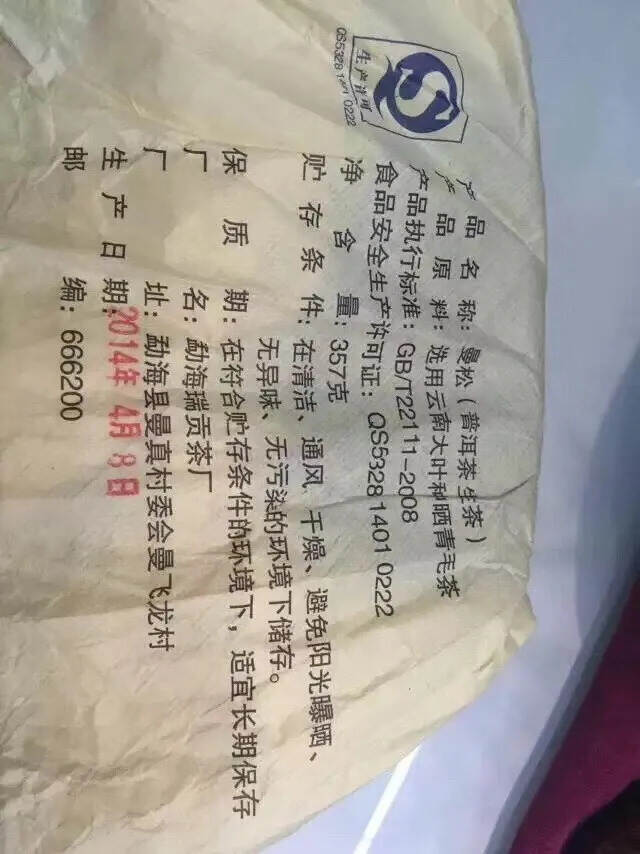 生产许可
QS5328 1401 0222
产品名称：曼松（普洱茶生茶）
产品原料：选用云南大叶种晒青毛茶
产品执行标准：GB/T22111-2008
食品安全生产许可证：QS5328 1401 0222
净含量：357克
贮存条件：在清洁、通风、干燥、避免阳光曝晒、
无异味、无污染的环境下储存。
保质期：在符合贮存条件的环境下，适宜长期保存
厂名：勐海瑞贡茶厂
厂址：勐海县曼真村委会曼飞龙村
生产日期：2014年4月8日
邮编：666200